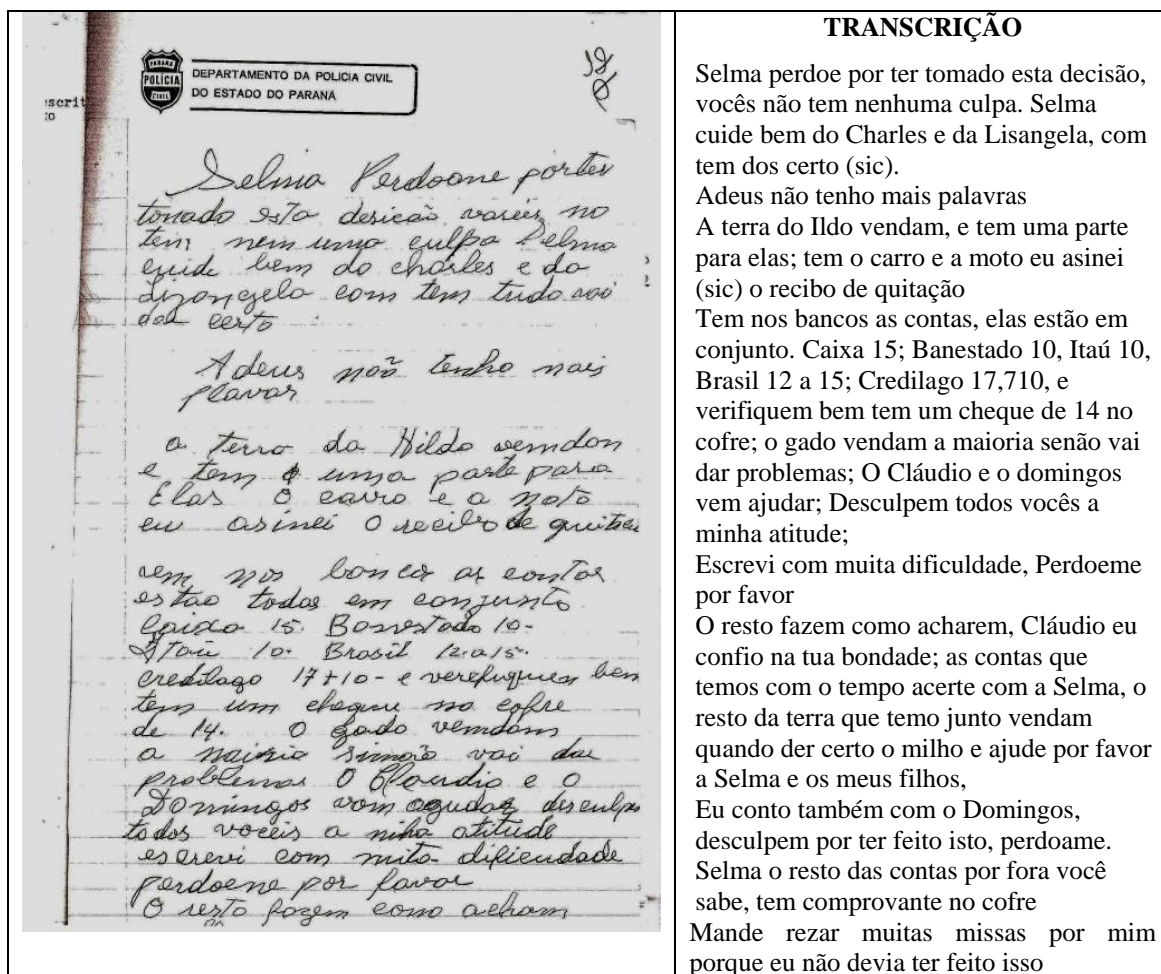 DEPARTAMENTO DA POLICIA CIVIL
DO ESTADO DO PARANÁ
PARANÁ
POLÍCIA
CIVIL
Selma Perdoane porter
tonado esta desicão no
tem nem uma culpa Selma
cuide bem do charles e da
Lizangela com tem tudo vai
dar certo
Adeus não tenho mais
plavar
a terra da Hildo vemdan
e tem uma parte para
Elas O carro e a moto
eu asinei O recibo de
nos banco as contas
estao todas em conjunto
Caixa 15. Banestado 10-
Itaú 10. Brasil 12.a 15.
credilago 17+10- e verefuquem bem
tem um cheque no cofre
de 14. O gado vemdam
a vai dar
problemas O Claudio e o
Domingos vom agudar desculpe
todos voceis a minha atitude
escrevi com muita dificuldade
perdoene por favor
O resto fazem como acham
TRANSCRIÇÃO
Selma perdoe por ter tomado esta decisão,
vocês não tem nenhuma culpa. Selma
cuide bem do Charles e da Lisangela, com
tem dos certo (sic).
Adeus não tenho mais palavras
A terra do Ildo vendam, e tem uma parte
para elas; tem o carro e a moto eu asinei
(sic) o recibo de quitação
Tem nos bancos as contas, elas estão em
conjunto. Caixa 15; Banestado 10, Itaú 10,
Brasil 12 a 15; Credilago 17,710, e
verifiquem bem tem um cheque de 14 no
cofre; o gado vendam a maioria senão vai
dar problemas; O Cláudio e o domingos
vem ajudar; Desculpem todos vocês a
minha atitude;
Escrevi com muita dificuldade, Perdoeme
por favor
O resto fazem como acharem, Cláudio eu
confio na tua bondade; as contas que
temos com o tempo acerte com a Selma, o
resto da terra que temo junto vendam
quando der certo o milho e ajude por favor
a Selma e os meus filhos,
Eu conto também com o Domingos,
desculpem por ter feito isto, perdoame.
Selma o resto das contas por fora você
sabe, tem comprovante no cofre
Mande rezar muitas missas por mim
porque eu não devia ter feito isso